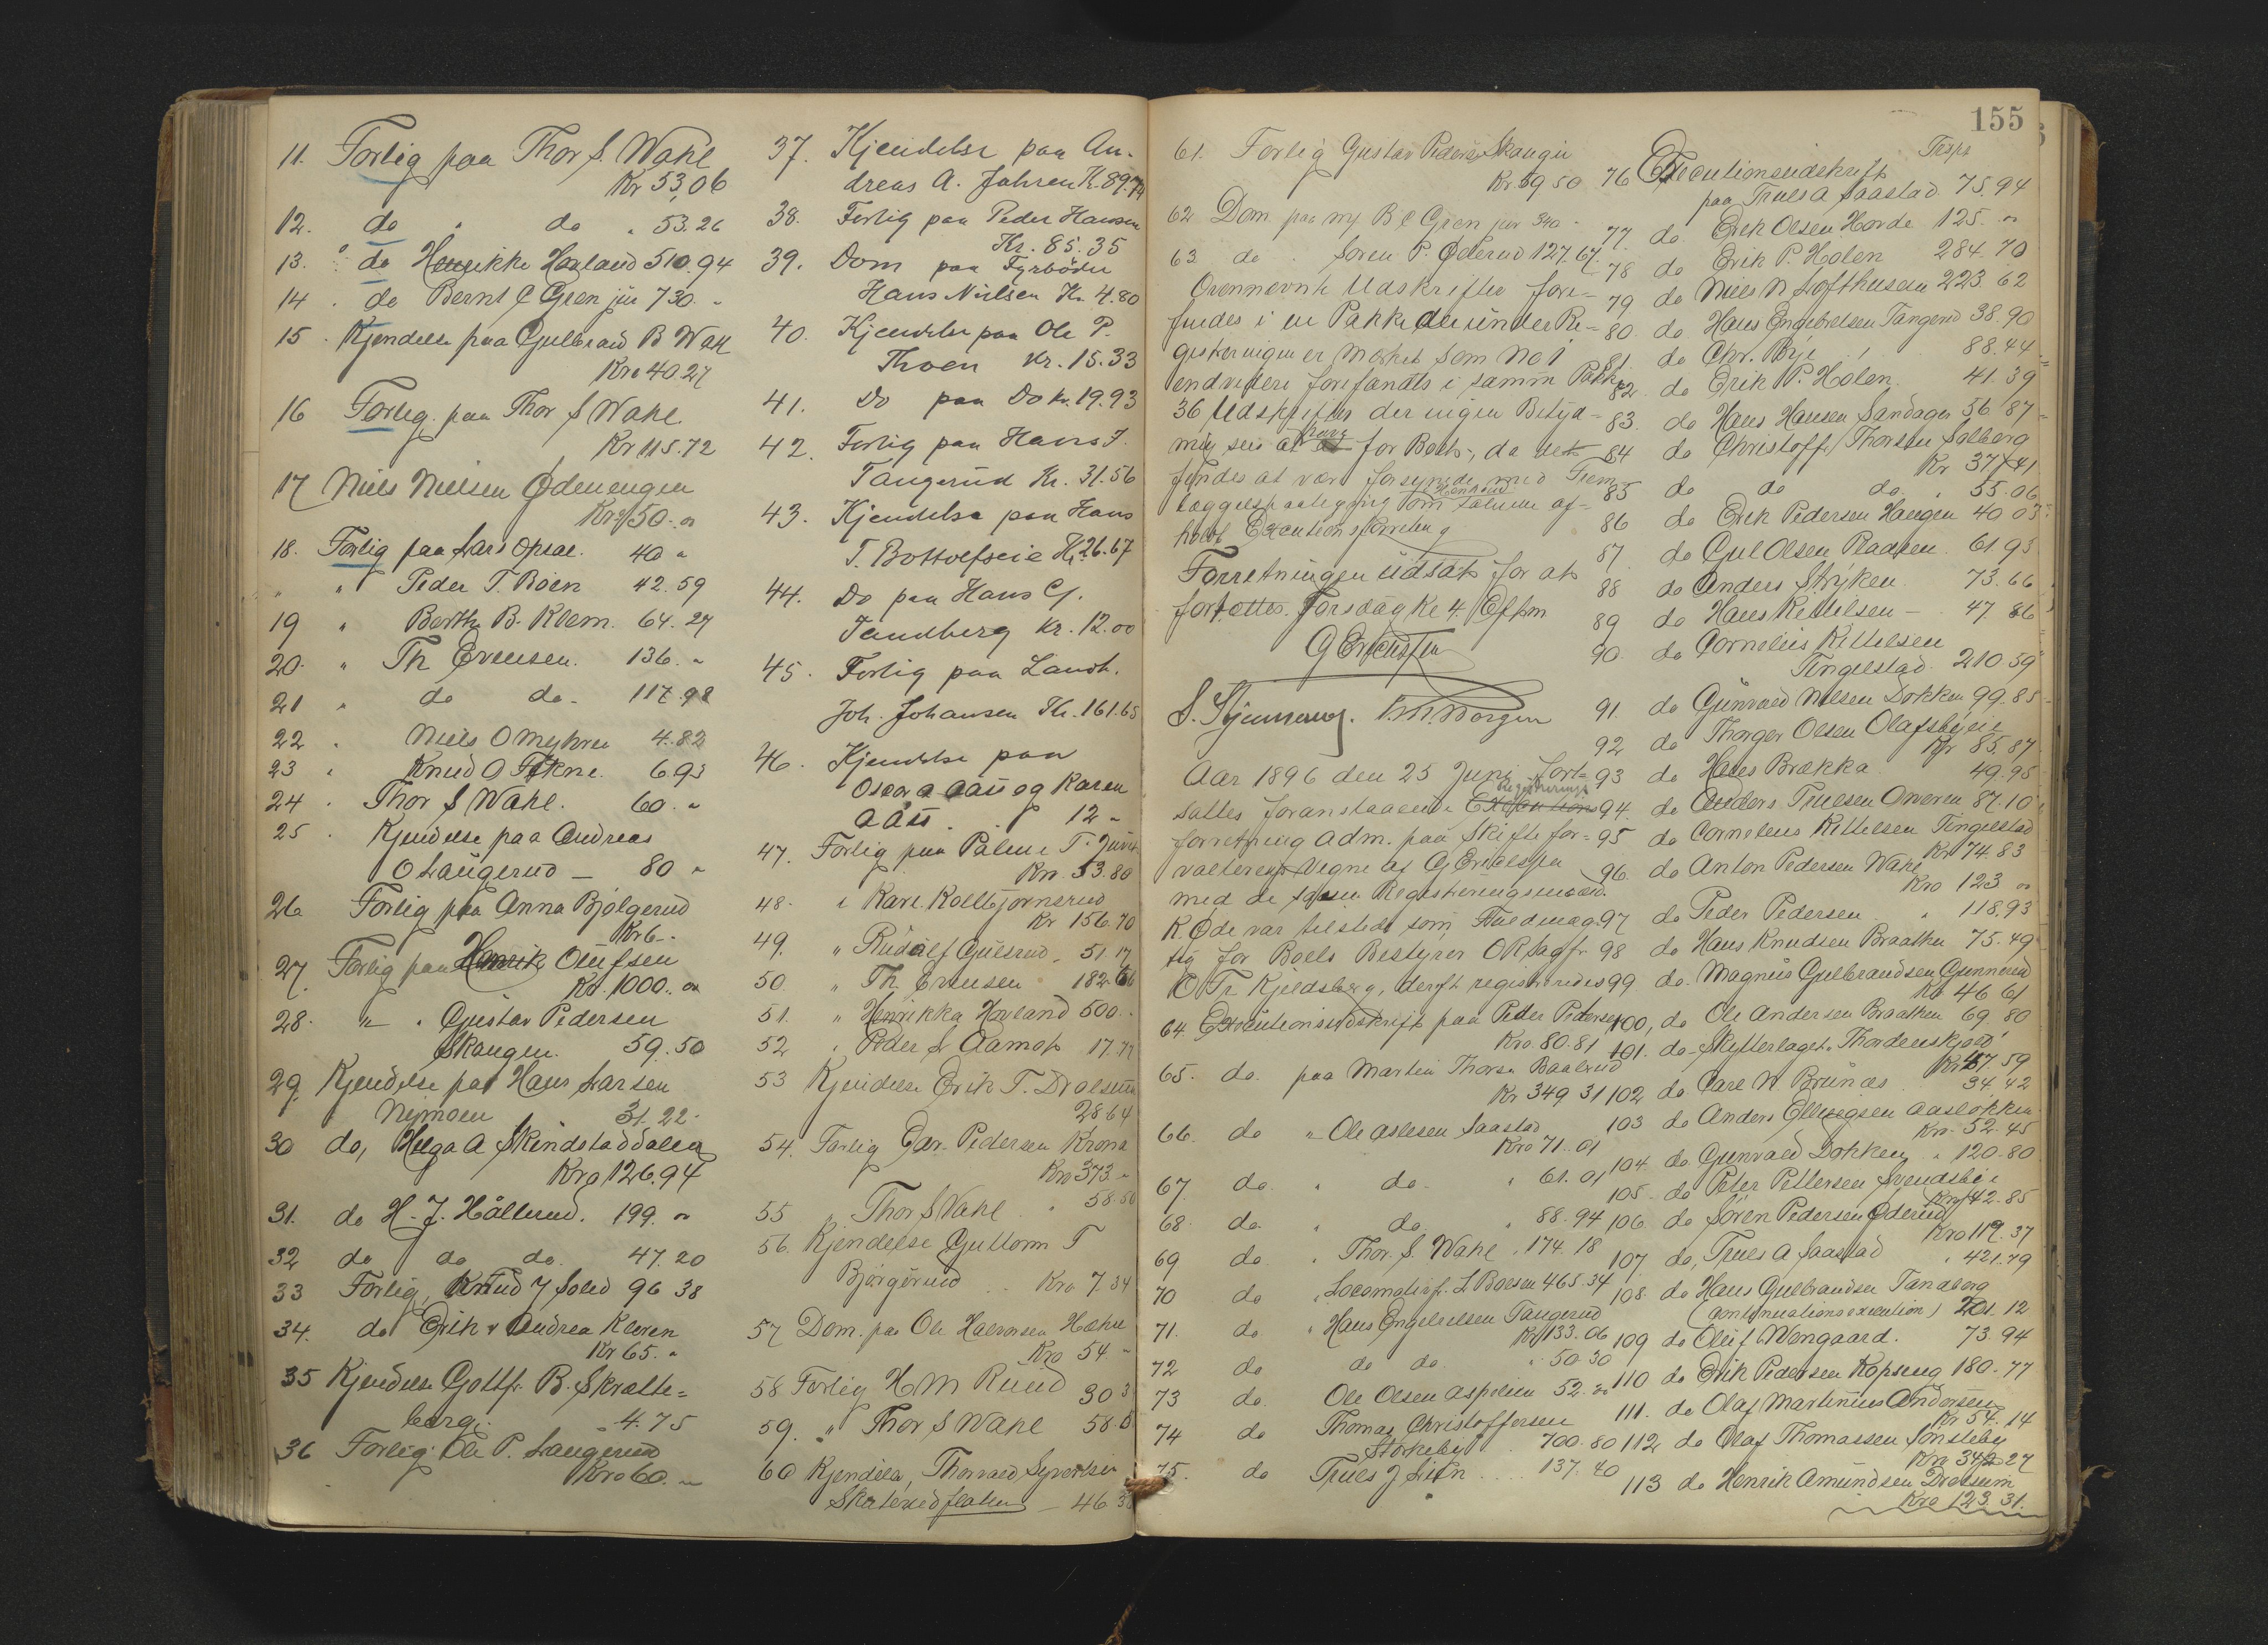 11. Forlig paa Thor S. Wahl
Kr 53,06
12. do " do " 53.26
13. " do Henrikke Hovland 510.94
14 . do Bernt C Gren jùr 730. "
15 . Kjendelse paa Gulbrand B Wahl
Kro 40.27
16 Forlig. paa Thor S Wahl.
Kr 115.72
17 Niels Nielsen Ødenengen
Kr 50. "
18. Forlig paa Lars Opsal. 40 "
" " Peder T. Roen 42.59
19 " Berthe B. Klem. 64.27
20. " Th Evensen. 136. "
21 " do do. 117.98
22 . Niels O Myhren 4.82
23 " Knud O 6.93
24 . Thor S Wahl. 60. "
25 . Kjendelse paa Andreas
O Laugerud — 80 "
26 Forlig paa Anna Bjølgerud
Kr 6 ".
27. Forlig paa Henrik Olufsen
Kr. 1000. "
28. " . Gustav Pedersen
Skaugen. 59.50
29. Kjendelse paa Hans Larsen
Nymoen 31.22.
30 do, Helga A Skindstaddalen
Kro 126.94
31. do H. J. Hålterud. 199. "
32 do do do. 47.20
33 Forlig, Knud J 96 38
34. do Erik & Andrea Kleven
Kr 65. "
35 Kjendelse Gottfr. B. Skratte=
berg. 4.75
36 Forlig. Ole P. Laugerud
Kro 60. "
37. Kjendelse paa An-
dreas A. Jahren K. 89.74
38. Forlig paa Peder Hansen
Kr. 85.35
39. Dom paa Fyrbøder
Hans Nielsen Kr. 4.80
40. Kjendelse paa Ole P.
Thoen Kr. 15.33
41. Do paa Do kr. 19.93
42. Forlig paa Hans J.
Tangerud Kr. 31.56
43. Kjendelse paa Hans
T. Bottolfseie Kr. 26.67
44. Do paa Hans G.
Tandberg Kr. 12.00
45. Forlig paa Landh.
Joh. Johansen Kr. 161.65
46. Kjendelse paa
Oscar Aas og Karen
Aas . . " 12 "
47. Forlig paa Palme T.
Kr. 53.80
48. " Karl Kolbjørnsrud
Kr 156.70
49. " Rudolf Gulsrud. 51.17
50. " Th. Evensen 182.66
51. " Henrikka Hovland 500. .
52 . Peder S Aamot 17.77
53 Kjendelse Erik T. Drolsum
28 64
54. Forlig Edv. Pedersen Krona
Kro 373. "
55 " Thor S Wahl " 58.50
56. Kjendelse Guttorm T
Bjørgerud . . Kro 7.34
57 Dom. paa Ole Halvorsen
Kro 54. "
58 Forlig H M Ruud 30 3
59. " Thor S Wahl 58.
60 Kjendelse, Thorvald Syvertsen
— 46 38
155
61. Forlig Gustav Peders Skaugen
Kr. 59 50
62 Dom. paa B C Gren jùr 340 "
63 do . Søren P. Øderud 127.67.
Ovennevnte Udskrifter fore-
findes i en Pakke der under Re-
gistreringen er Mærket som No 1
endvidere forefandts i samme Pakke
36 Udskrifter der ingen Betyd-
ning sees at have for Boet, da det
findes at være forsynede med Frem-
læggelsespaategning om Henhold saluen af-
holdt Executionsforretning
Forretningen udsat for at
fortsættes Torsdag Kl 4 Eftm
G Erichsen
S. Stjernang.
Aar 1896 den 25 Juni fort-
sattes foranstaaende Registrerings Executions
forretning adm. paa Skiftefor-
valterens Vegne af G Erichsen
med de samme Registreringsmænd.
K Øde var tilstede som Fuldmæg-
tig for Boets Bestyrer ORSagfr.
O Tr Kjeldsberg, derpt registreredes
64. Executionsudskrift paa Peder Pedersen
Kro. 80.81
65. do. paa Martin Thorsen Baalsrud
Kr 349 31
66. do " Ole Aslesen Saastad
Kro 71.01
67 do. " do. " 61.01
68. do. " do. " 88.94
69 do. " Thor. S. Wahl . 174.18
70 do " Locomotivf. L Boesen 465.34
71. do " Hans Engebretsen Tangerud
Kr 133.06
72 do do do. ". 50 30
73 do. Ole Olsen Aspelien 52.20
74 do Thomas Christoffersen
Storkeby . 700.80
75. do Truls J Lien . . . 137.40
76 Executionsudskrift Trspt
paa Truls A Saastad. 75.94
77. do. Erik Olsen Horde 125. "
78 do Erik P. Holen 284.70
79 do Niels N Lofthusen 223.62
80. do Hans Engebretsen Tangerud 38.90
81. do Chr. Bye " 88.44
82. do Erik P. Holen. 41.39
83. do Hans Hansen Sandager 56 87
84 do Christoffer Thorsen Solberg
Kr 37 41
85 do do do. . 55.06
86 do Erik Pedersen Haugen 40 03
87 . do Gul Olsen Pladsen. 61.93
88 do Anders Stryken. 73.66
89 do Hans Kittilsen — 47 86
90. do Cornelius Kittelsen
Tingelstad. 210.59
91. do Gunvald Nilsen Dokken 99.85
92 do Thorger Olsen Olafsbyeie
Kr 85.87
93 do Hans Brækka. 49.95
94. do Anders Truesen Orveren 87.10
95 do Cornelius Kittelsen Tingelstad
Kr 74.83
96. do Anton Pedersen Wahl
Kro 123 "
97 do Peder Pedersen. " 118.93
98 do Hans Knudsen Braathen 75.49
99 do. Magnus Gulbrandsen Gunnerud
Kr 46 61
100, do Ole Andersen Braathen 69 80
101. do. Skytterlaget. Thordenskjold
Kr 47.59
102 do Carl W. Brunæs 34.42
103 do Anders Ellingsen Aasløkken
Kro. 52.45
104. do Gunvald Dokken " 120.80
105. do Peter Pettersen Svendsbie
Kro 142.85
106. do Søren Pedersen Øderud
Kro 119.37
107 do, Truls A Saastad " 421.79
108. do Hans Gulbrandsen Tandberg
(Continuationsexecution) 201.12
109 do Oluf Wengaard. 73.94
110 do Erik Pedersen Kopseng 180.77
111. do Olaf Martinius Andersen
Kr 54.14
112 do Olaf Thomassen Sønsteby
113 do Henrik Amundsen Drolsum
Kro 123.31.